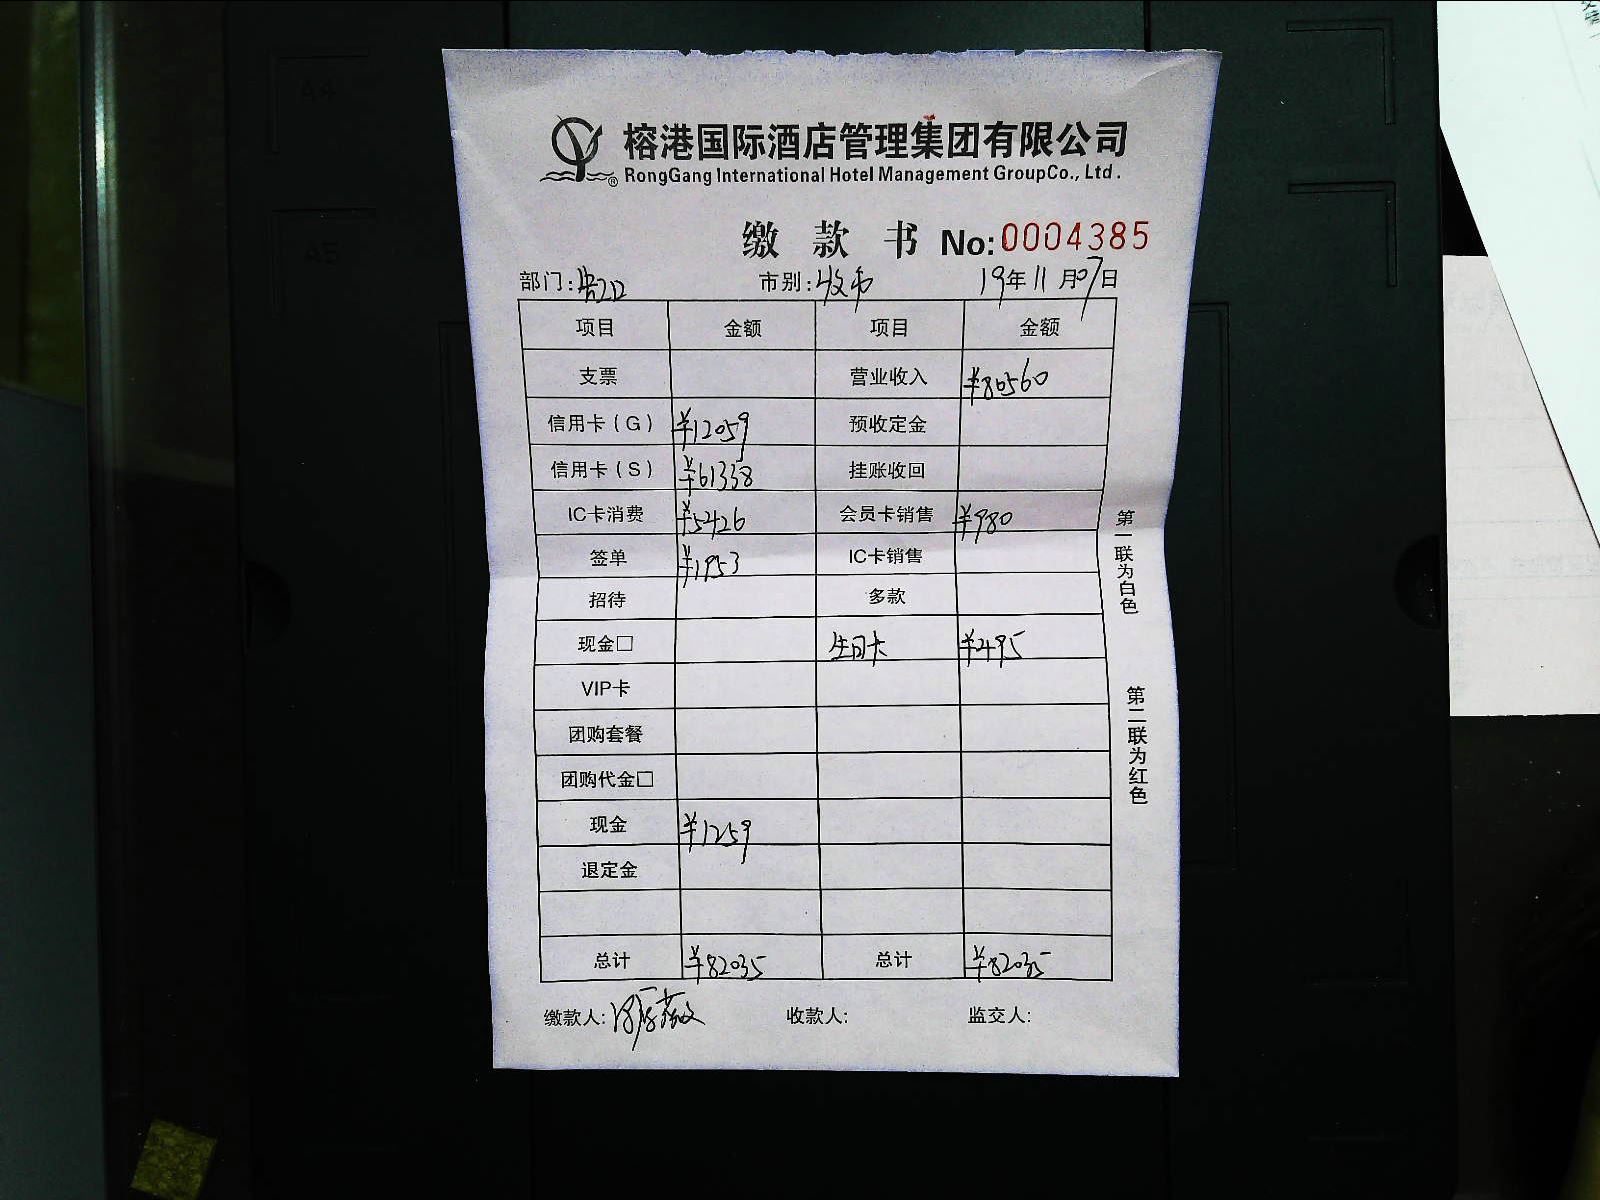 榕港国际酒店管理集团有限公司
RongGang International Hotel Management GroupCo., Ltd.
缴款书 No:0004385
部门: 市别:收市 19年11月07日
项目 金额 项目 金额
支票 营业收入 ¥80560
信用卡(G) ¥12059 预收定金
信用卡(S) ¥61338 挂账收回
IC卡消费 ¥5426 会员卡销售 ¥980
签单 ¥1953 IC卡销售
招待 多款
现金□ 生日卡 ¥495
VIP卡
团购套餐
团购代金□
现金 ¥1259
退定金
总计 ¥82035 总计 ¥82035
缴款人: 收款人: 监交人:
第一联为白色
第二联为红色
A4
A5